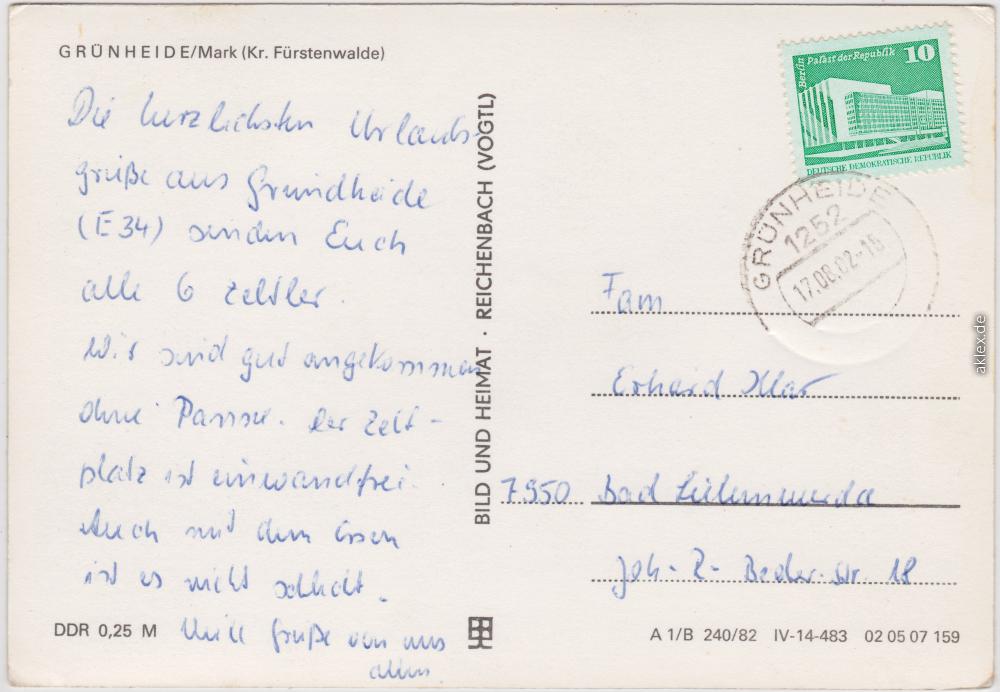 GRÜNHEIDE/Mark (Kr. Fürstenwalde)
Die herzlichsten Urlaubs-
grüße aus Grünheide
(E34) senden Euch
alle 6 Zeltler.
Wir sind gut angekommen
ohne Panne. Der Zelt-
platz ist einwandfrei.
Auch mit dem Essen
ist es nicht schlecht.
Viele Grüße von uns
allen.
DDR 0,25 M
BILD UND HEIMAT · REICHENBACH (VOGTL)
Berlin Palast der Republik 10
DEUTSCHE DEMOKRATISCHE REPUBLIK
GRÜNHEIDE
1252
17.08.82-15
Fam
Erhard Klar
7950 Bad Liebenwerda
Joh.-R.-Becher-Str. 18
A 1/B 240/82 IV-14-483 02 05 07 159
aklex.de